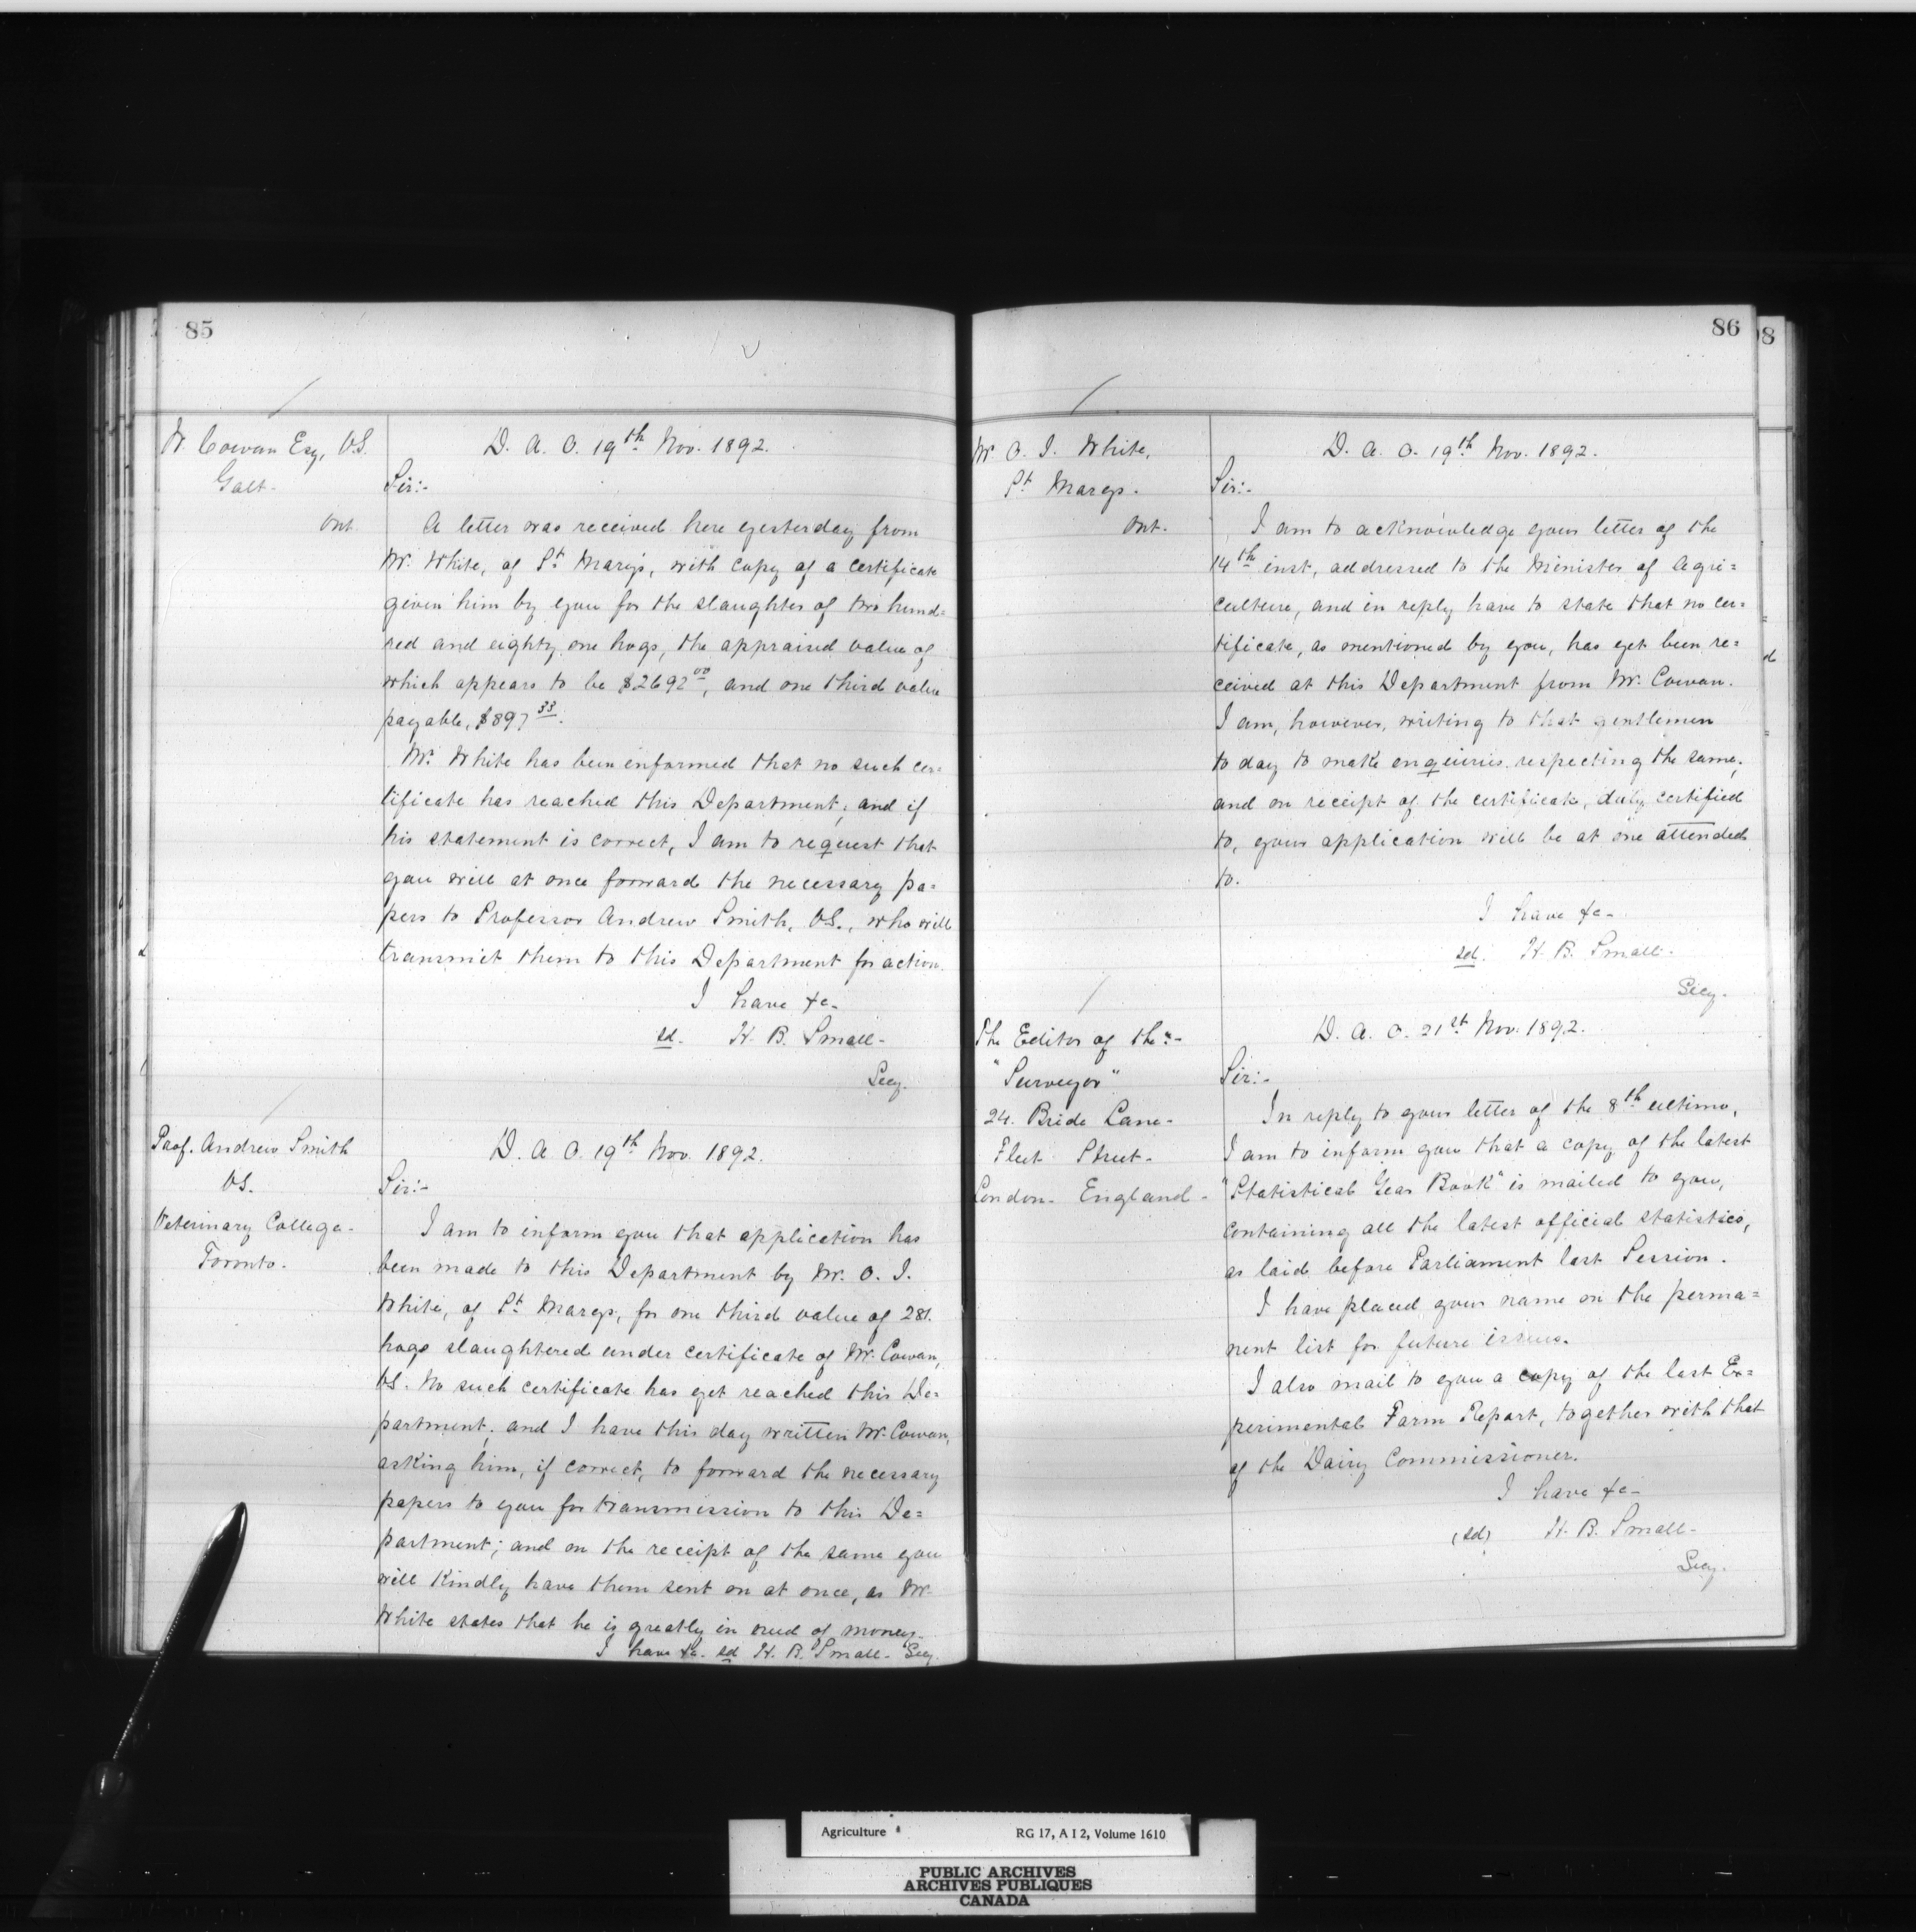 85
W. Cowan Esq, V.S.
Galt.
Ont.
D. A. O. 19th Nov. 1892.
Sir:-
A letter was received here yesterday from
Mr. White, of St. Mary's, with copy of a certificate
given him by you for the slaughter of two hund=
red and eighty one hogs, the appraised value of
which appears to be $2692 00, and one third value
payable, $897 33.
Mr. White has been informed that no such cer=
tificate has reached this Department; and if
his statement is correct, I am to request that
you will at once forward the necessary pa=
pers to Professor Andrew Smith, V.S., who will
transmit them to this Department for action.
I have &c-
sd. H. B. Small-
Secy.
Prof. Andrew Smith
V.S.
Veterinary College-
Toronto.
D. A. O. 19th Nov. 1892.
Sir:-
I am to inform you that application has
been made to this Department by Mr. O. I.
White, of St. Marys, for one third value of 281.
hogs slaughtered under certificate of Mr. Cowan,
V.S. No such certificate has yet reached this De=
partment; and I have this day written Mr. Cowan,
asking him, if correct, to forward the necessary
papers to you for transmission to this De=
partment; and on the receipt of the same you
will kindly have them sent on at once, as Mr.
White states that he is greatly in need of money.
I have &c. sd H. B. Small- Secy.
86
98
Mr. O. I. White,
St. Marys.
Ont.
D. A. O. 19th Nov. 1892.
Sir:-
I am to acknowledge your letter of the
14th inst, addressed to the Minister of Agri=
culture, and in reply have to state that no cer=
tificate, as mentioned by you, has yet been re=
ceived at this Department from Mr. Cowan.
I am, however, writing to that gentlemen
to day to make enquiries respecting the same;
and on receipt of the certificate, duly certified
to, your application will be at one attended
to.
I have &c-
sd. H. B. Small-
Secy.
The Editor of the:-
"Surveyor"
24. Bride Lane-
Fleet Street-
London- England-
D. A. O. 21st Nov. 1892.
Sir:-
In reply to your letter of the 8th ultimo,
I am to inform you that a copy of the latest
"Statistical Year Book" is mailed to you,
containing all the latest official statistics,
as laid before Parliament last Session.
I have placed your name on the perma=
nent list for future issues.
I also mail to you a copy of the last Ex=
perimental Farm Report, together with that
of the Dairy Commissioner.
I have &c-
(sd) H. B. Small-
Secy.
Agriculture RG 17, A I 2, Volume 1610
PUBLIC ARCHIVES
ARCHIVES PUBLIQUES
CANADA